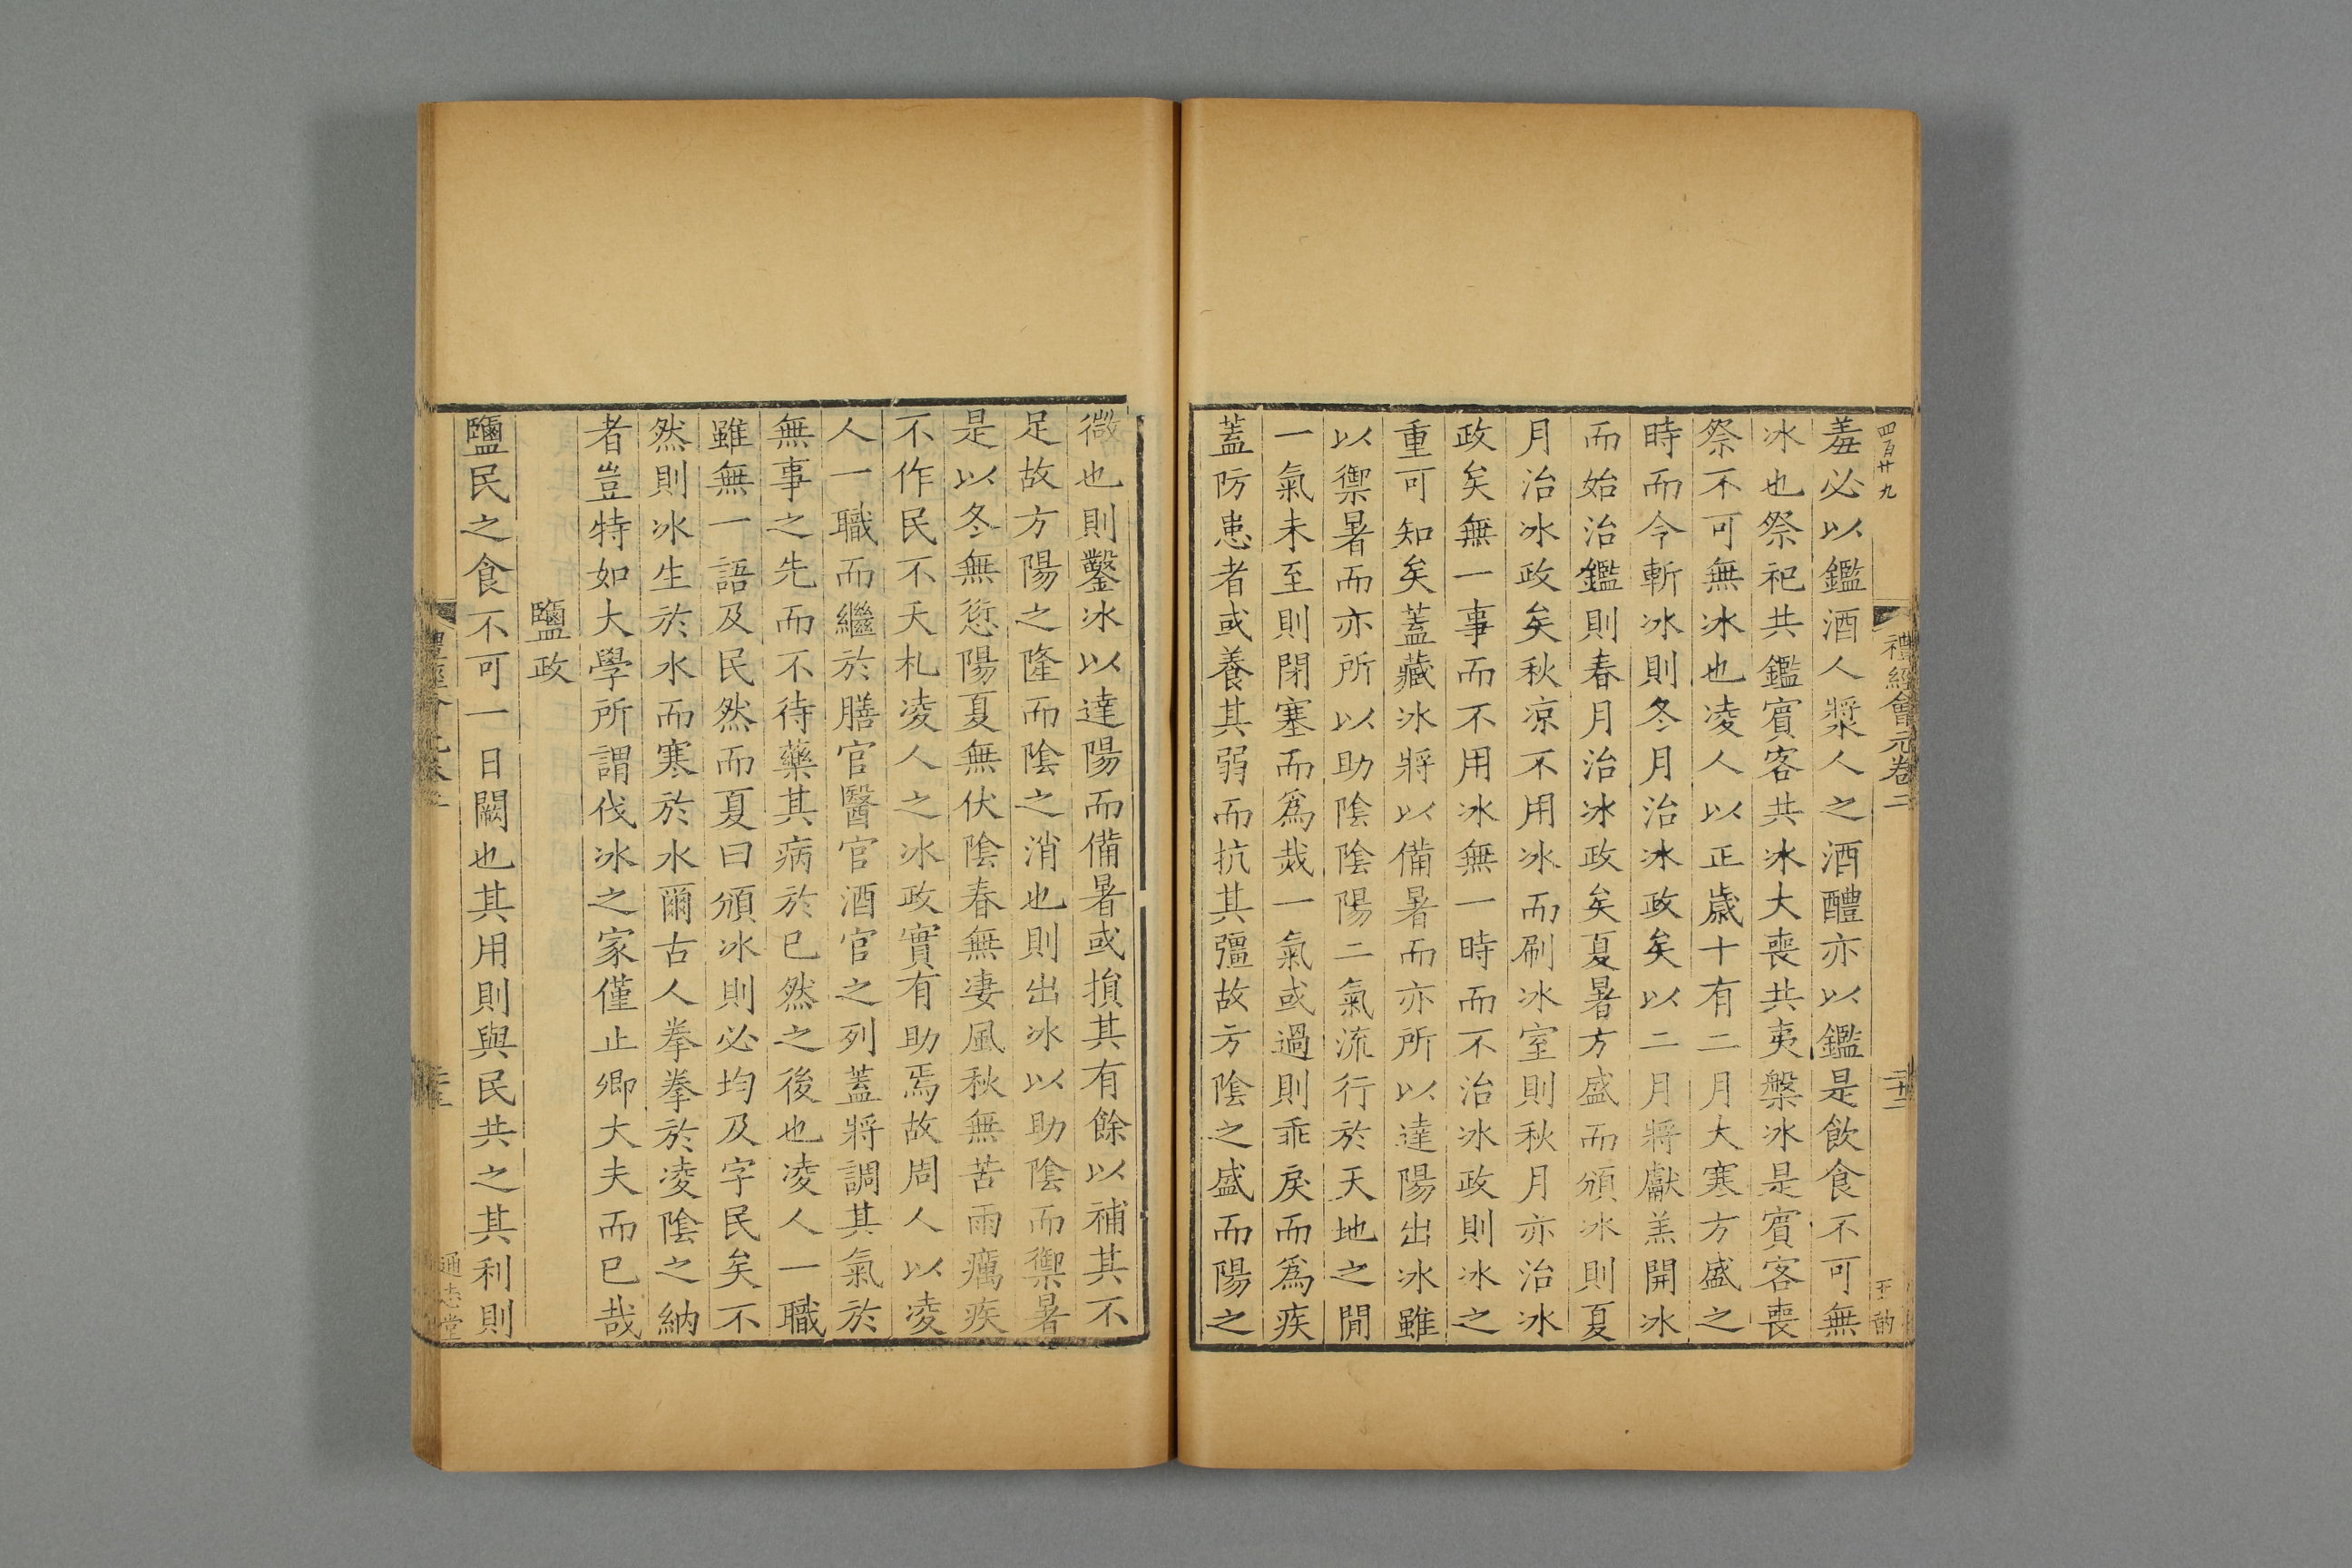 四百廿九
禮經會元卷二
二十二
羞必以鑑酒人漿人之酒醴亦以鑑是飲食不可無
冰也祭祀共鑑賓客共冰大喪共夷槃冰是賓客喪
祭不可無冰也凌人以正歲十有二月大寒方盛之
時而令斬冰則冬月治冰政矣以二月將獻羔開冰
而始治鑑則春月治冰政矣夏暑方盛而頒冰則夏
月治冰政矣秋凉不用冰而刷冰室則秋月亦治冰
政矣無一事而不用冰無一時而不治冰政則冰之
重可知矣蓋藏冰將以備暑而亦所以達陽出冰雖
以禦暑而亦所以助陰陰陽二氣流行於天地之閒
一氣未至則閉塞而爲烖一氣或過則乖戾而爲疾
蓋防患者或養其弱而抗其彊故方陰之盛而陽之
微也則鑿冰以達陽而備暑或損其有餘以補其不
足故方陽之隆而陰之消也則出冰以助陰而禦暑
是以冬無愆陽夏無伏陰春無凄風秋無苦雨癘疾
不作民不夭札凌人之冰政實有助焉故周人以凌
人一職而繼於膳官醫官酒官之列蓋將調其氣於
無事之先而不待藥其病於已然之後也凌人一職
雖無一語及民然而夏曰頒冰則必均及字民矣不
然則冰生於水而寒於水爾古人拳拳於凌陰之納
者豈特如大學所謂伐冰之家僅止卿大夫而已哉
鹽政
鹽民之食不可一日闕也其用則與民共之其利則
通志堂